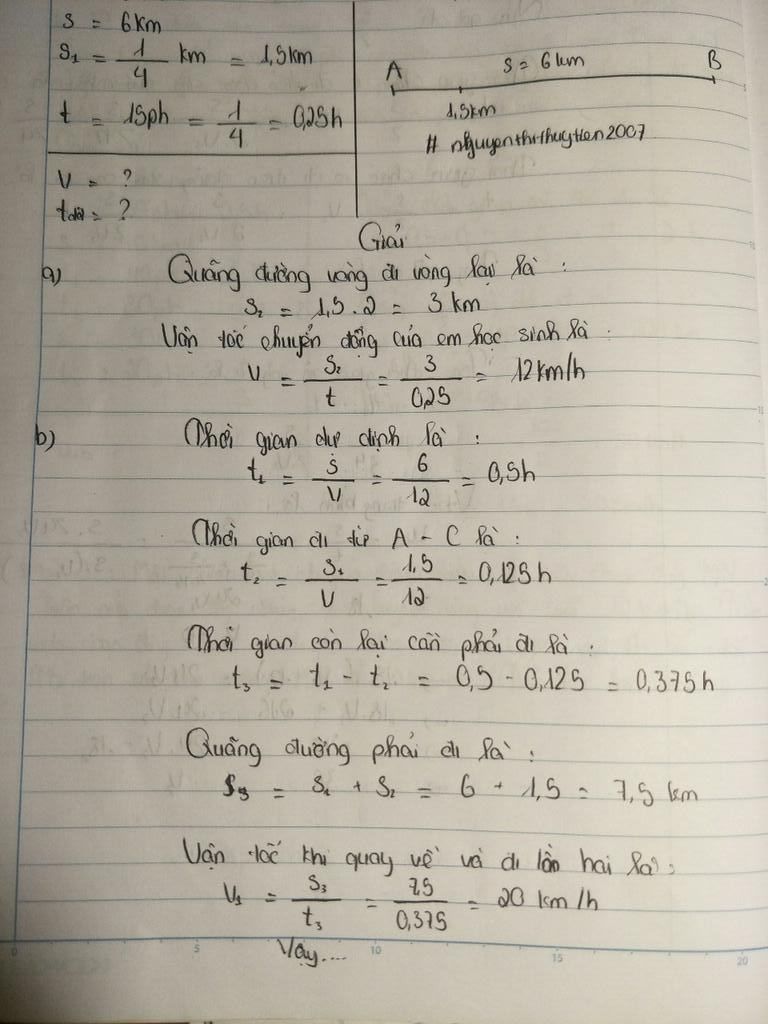 s = 6km
s₁ = 1/4 km = 1,5km
t = 15ph = 1/4 = 0,25h
v = ?
tdđ = ?
A s = 6km B
1,5km
# nguyenthithuytien2007
Giải
a) Quãng đường vòng đi vòng lại là :
s₂ = 1,5 . 2 = 3 km
Vận tốc chuyển động của em học sinh là :
v = s₂/t = 3/0,25 = 12km/h
b) Thời gian dự định là :
t₁ = s/v = 6/12 = 0,5h
Thời gian đi từ A - C là :
t₂ = s₁/v = 1,5/12 = 0,125h
Thời gian còn lại cần phải đi là :
t₃ = t₁ - t₂ = 0,5 - 0,125 = 0,375h
Quãng đường phải đi là :
s₃ = s₁ + s₂ = 6 + 1,5 = 7,5 km
Vận tốc khi quay về và đi lần hai là :
v₁ = s₃/t₃ = 7,5/0,375 = 20 km/h
Vậy....
0 5 10 15 20